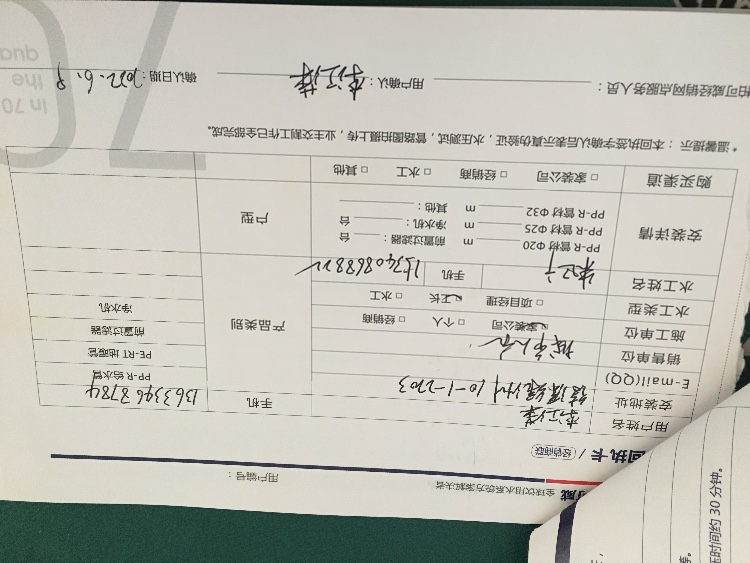 全球饮用水系统方案解决者
用户编号：
回执卡 / 经销商联
用户姓名
手机 13633963784
安装地址 10-1-2203
E-mail(QQ)
销售单位
施工单位 家装公司 □ 个人 □ 经销商
水工类型 □ 项目经理 工长 □ 水工
水工姓名 手机
产品类别
PP-R 给水管
PE-RT 地暖管
前置过滤器
净水机
安装详情
PP-R 管材 Φ20 m 前置过滤器： 台
PP-R 管材 Φ25 m 净水机： 台
PP-R 管材 Φ32 m 其他：
户型
购买渠道 □ 家装公司 □ 经销商 □ 水工 □ 其他
* 温馨提示：本回执签字确认后表示真伪验证，水压测试，管路图拍摄上传，业主交割工作已全部完成。
柏可威经销网点服务人员：
用户确认：
确认日期：2022.6.9
In 70
the
qua
70
压时间约 30 分钟。